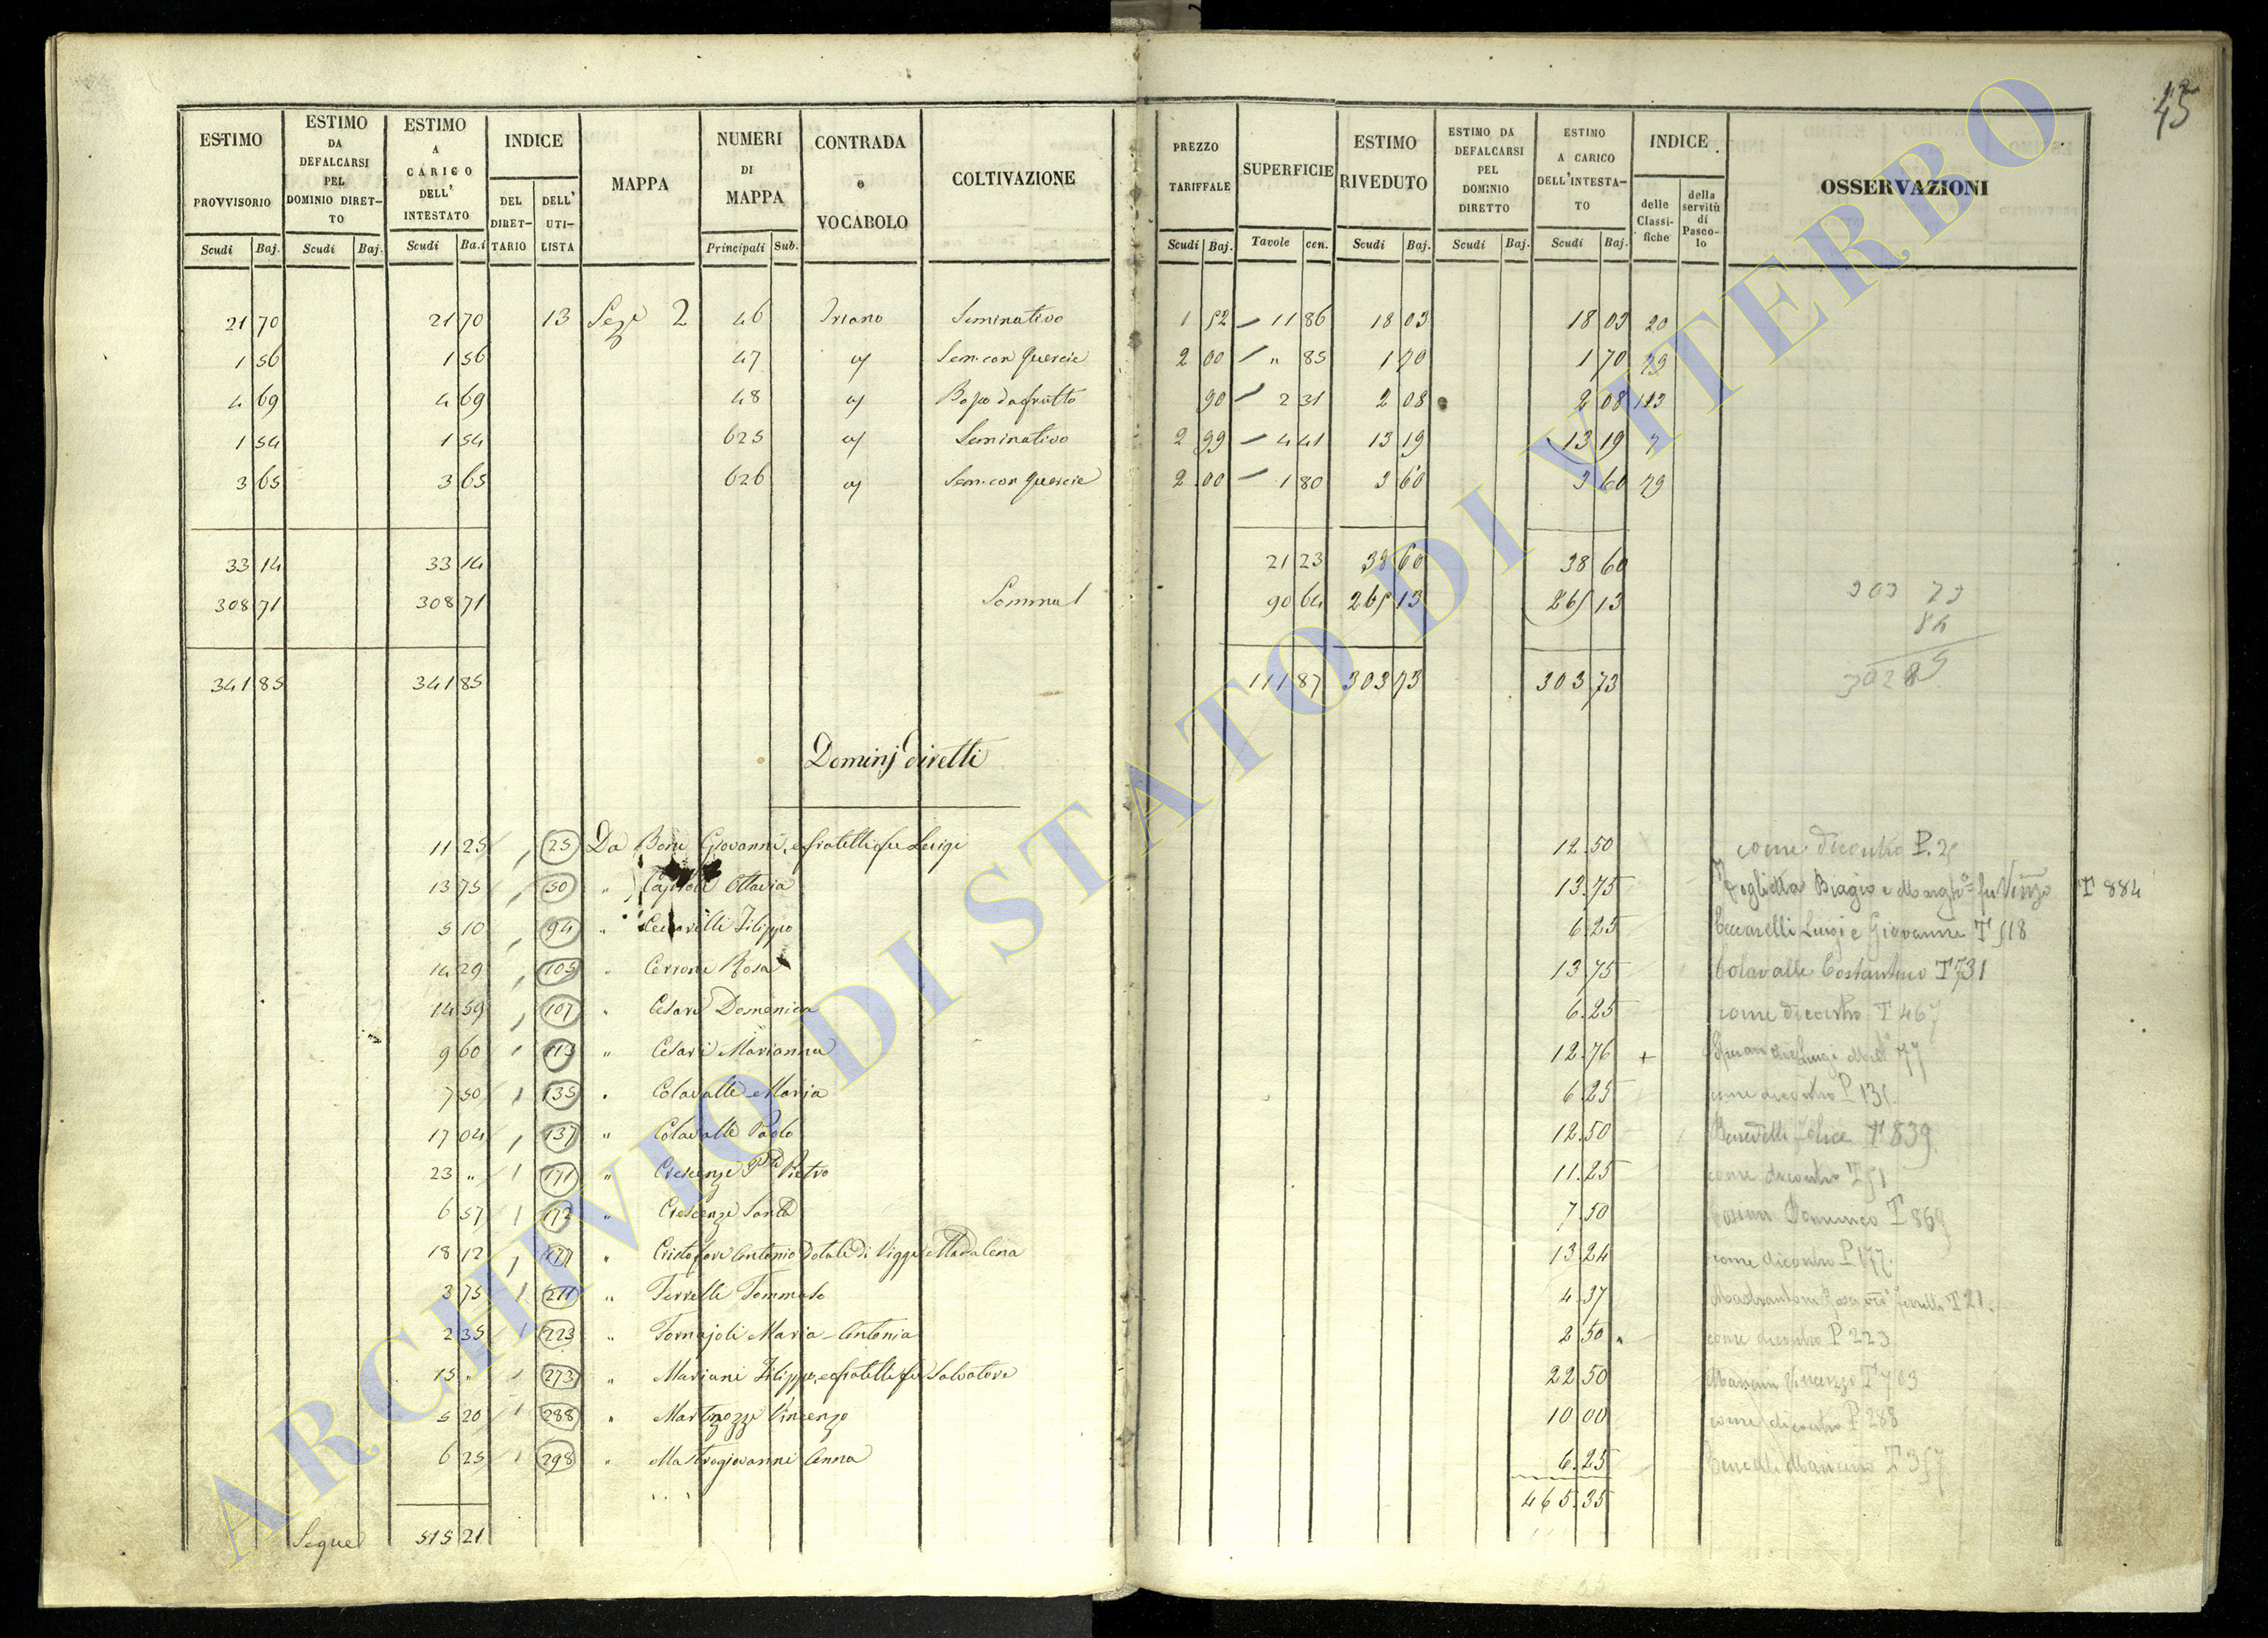 45
ESTIMO PROVVISORIO ESTIMO DA DEFALCARSI PEL DOMINIO DIRET-TO ESTIMO A CARICO DELL' INTESTATO INDICE DEL DIRET-TARIO DELL' UTI-LISTA MAPPA NUMERI DI MAPPA CONTRADA e VOCABOLO COLTIVAZIONE PREZZO TARIFFALE SUPERFICIE ESTIMO RIVEDUTO ESTIMO DA DEFALCARSI PEL DOMINIO DIRETTO ESTIMO A CARICO DELL'INTESTA-TO INDICE delle Classi-fiche della servitù di Pasco-lo OSSERVAZIONI
Scudi Baj. Scudi Baj. Scudi Ba.i Principali Sub. Scudi Baj. Tavole cen. Scudi Baj. Scudi Baj. Scudi Baj.
21 70 21 70 13 Seze 2 46 Iriano Seminativo 1 52 11 86 18 03 18 03 20
1 56 1 56 47 Sem. con Quercie 2 00 " 85 1 70 1 70 79
4 69 4 69 48 Bosco da frutto 90 2 31 2 08 2 08 113
1 54 1 54 625 Seminativo 2 99 4 41 13 19 13 19 7
3 65 3 65 626 Sem. con Quercie 2 00 1 80 3 60 3 60 79
33 14 33 14 21 23 38 60 38 60
308 71 308 71 Somma 90 64 265 13 265 13
303 73
84
302 89
341 85 341 85 111 87 303 73 303 73
Dominj diretti
11 25 25 Da Boni Giovanni, e fratelli fu Luigi 12.50 come dicontro P. 25
13 75 50 " Ottavia 13.75 Foglietta Biagio e fu Vinzo T 884
5 10 94 " Ceccarelli Filippo 6.25 Ceccarelli Luigi e Giovanni T 518
14 29 105 " Cerroni Rosa 13.75 Colavalle Costantino T 731
14 59 107 " Cesari Domenica 6.25 come dicontro T 467
9 60 113 " Cesari Marianna 12.76 + Luigi 77
7 50 135 " Colavalle Maria 6.25 come dicontro P 135
17 04 137 " Colavalle Paolo 12.50 Benedetti Felice T 839
23 " 171 " Crescenze Pietro 11.25 come dicontro T 51
6 57 172 " Crescenze Santa 7.50 Domenico T 869
18 12 177 " Cristofori Antonio Dotale di Viggi Madalena 13.24 come dicontro P 177.
3 75 211 " Ferrelli Tommaso 4.37 Mastrantoni Rosa T 21.
2 35 223 " Fornajoli Maria-Antonia 2.50 come dicontro P 223
15 " 273 " Mariani Filippo, e fratelli fu Salvatore 22.50 Vincenzo T 703
5 20 288 " Martinozzi Vincenzo 10.00 come dicontro P 288
6 25 298 " Mastrogiovanni Anna 6.25 T 357
465.35
Segue 515 21
ARCHIVIO DI STATO DI VITERBO